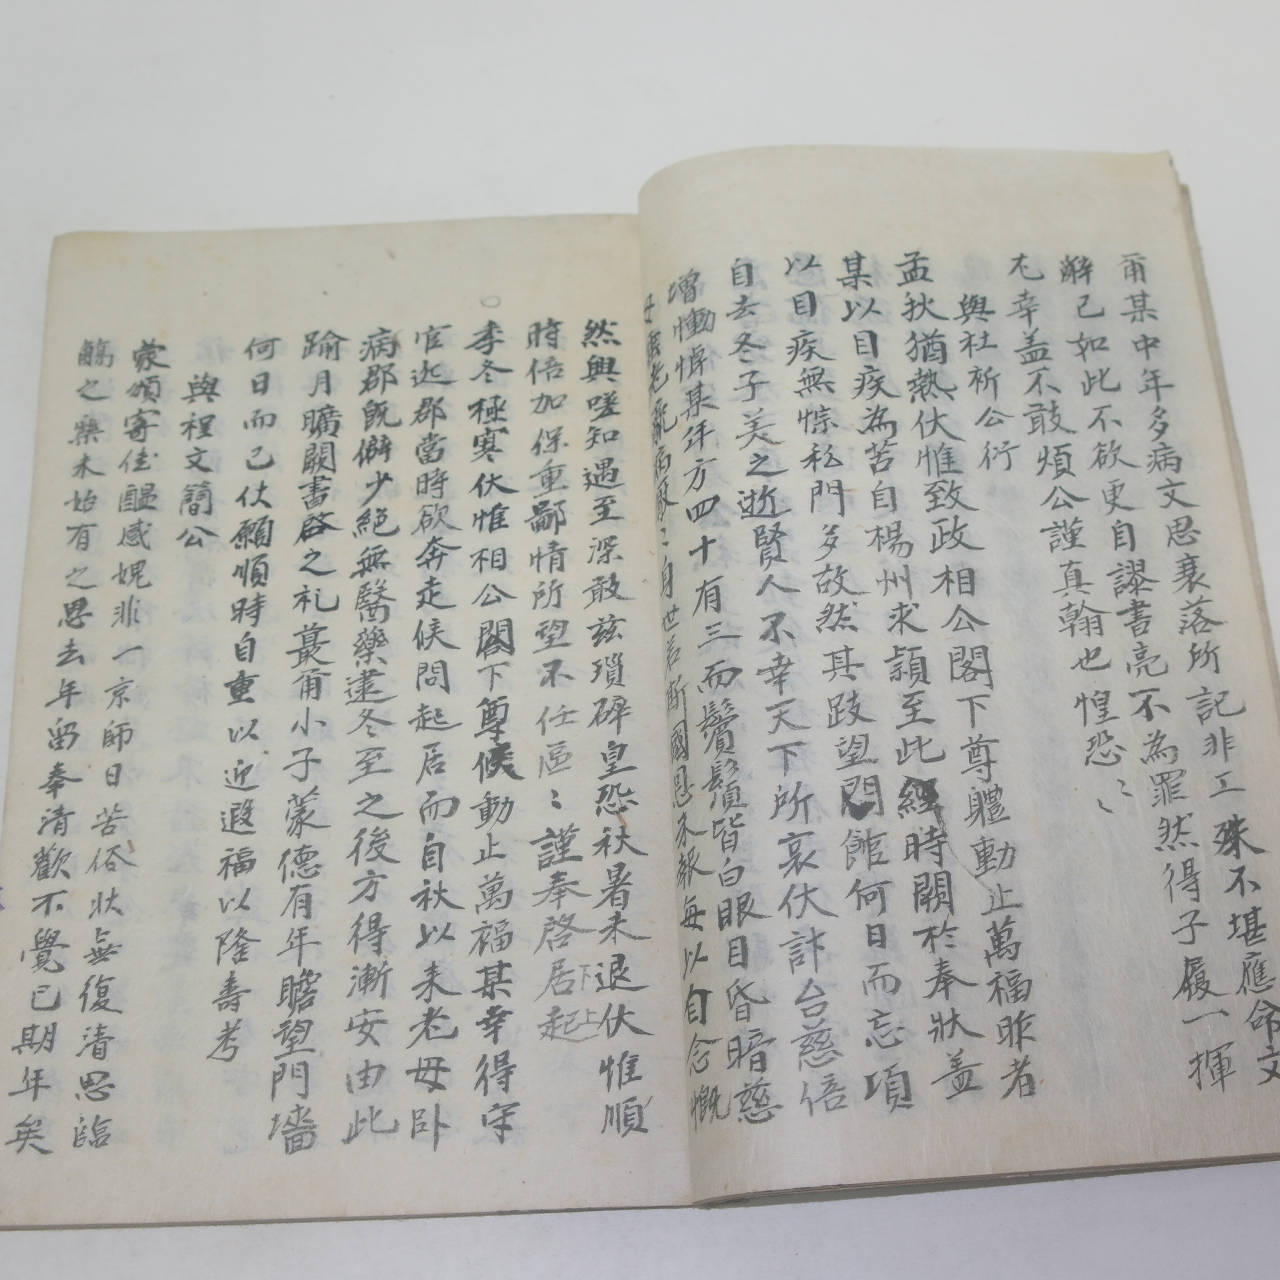 爾某中年多病文思衰落所記非工殊不堪應命文
辭已如此不欲更自謬書亮不為罪然得子履一揮
尤幸盖不敢煩公謹真翰也惶恐〻
與社祈公衍
孟狄猶熱伏惟致政相公閣下尊軆動止萬福昨者
某以目疾為苦自楊州求頴至此經時闕於奉狀盖
以目疾無悰秘門多故然其跂望門館何日而忘項
自去冬子美之逝賢人不幸天下所哀伏計台慈倍
增慟悼某年方四十有三而鬢鬚皆白眼目昏暗慈
母老病厭〻身世若斷國恩未報每以自念慨
然興嗟知遇至深敢玆瑣碎皇恐秋暑未退伏惟順
時倍加保重鄙情所望不任區〻謹奉啓居下起上
○
季冬極寒伏惟相公閣下尊候動止萬福某幸得守
官近郡當時欲奔走候問起居而自秋以来老母卧
病郡旣僻少絕無醫藥逮冬至之後方得漸安由此
踰月曠闕書啓之礼蕞爾小子蒙德有年瞻望門墻
何日而已伏願順時自重以迎遐福以隆壽考
與程文簡公
蒙頒寄佳醞感媿非一京師日苦俗狀無復清思臨
觴之樂未始有之思去年留奉清歡不覺已期年矣